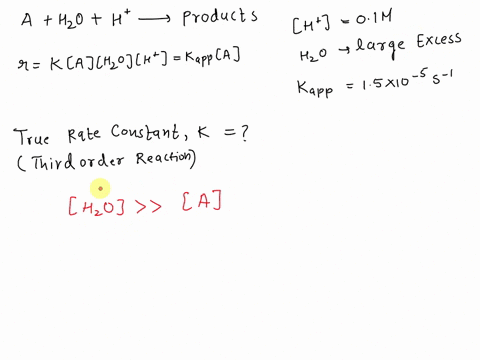 A + H₂O + H⁺ ⟶ products
r = K[A][H₂O][H⁺] = Kapp[A]
[H⁺] = 0.1M
H₂O → large Excess
Kapp = 1.5×10⁻⁵ s⁻¹
True Rate Constant, K = ?
(Third order Reaction)
[H₂O] >> [A]